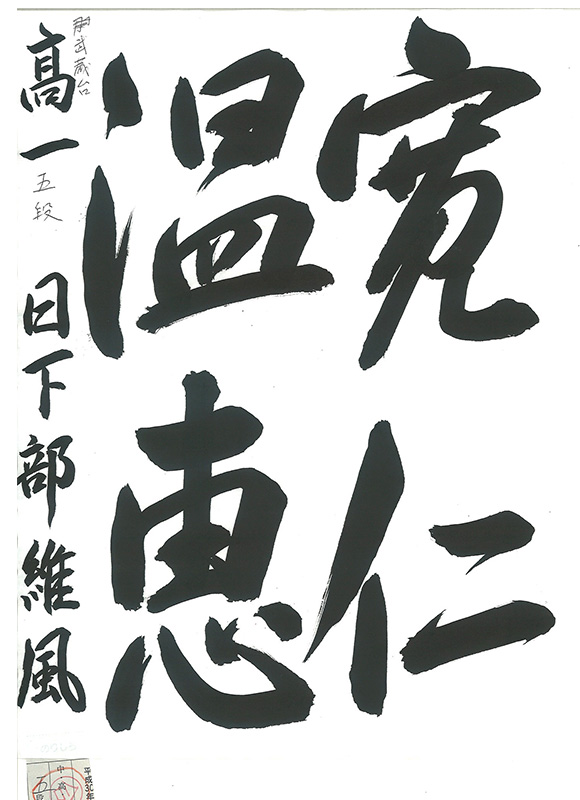 寛仁
温恵
武蔵台
高一 五段 日下部維風
平成30年
中高
五段